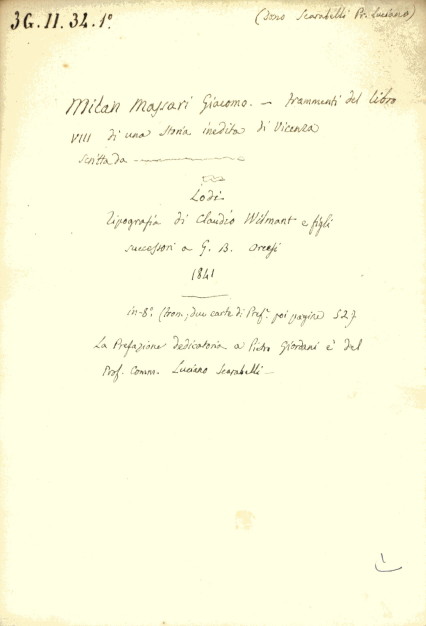 3G.II.34.1º
(Dono Scarabelli Pr. Luciano)
Milan Massari Giacomo. — Frammenti del libro
VIII di una storia inedita di Vicenza
scritta da
Lodi
Tipografia di Claudio Wilmant e figli
successori a G. B. Orcesi
1841
in-8º. (front., due carte di Prefne poi pagine 52)
La Prefazione dedicatoria a Pietro Giordani è del
Prof. Comm. Luciano Scarabelli —
1